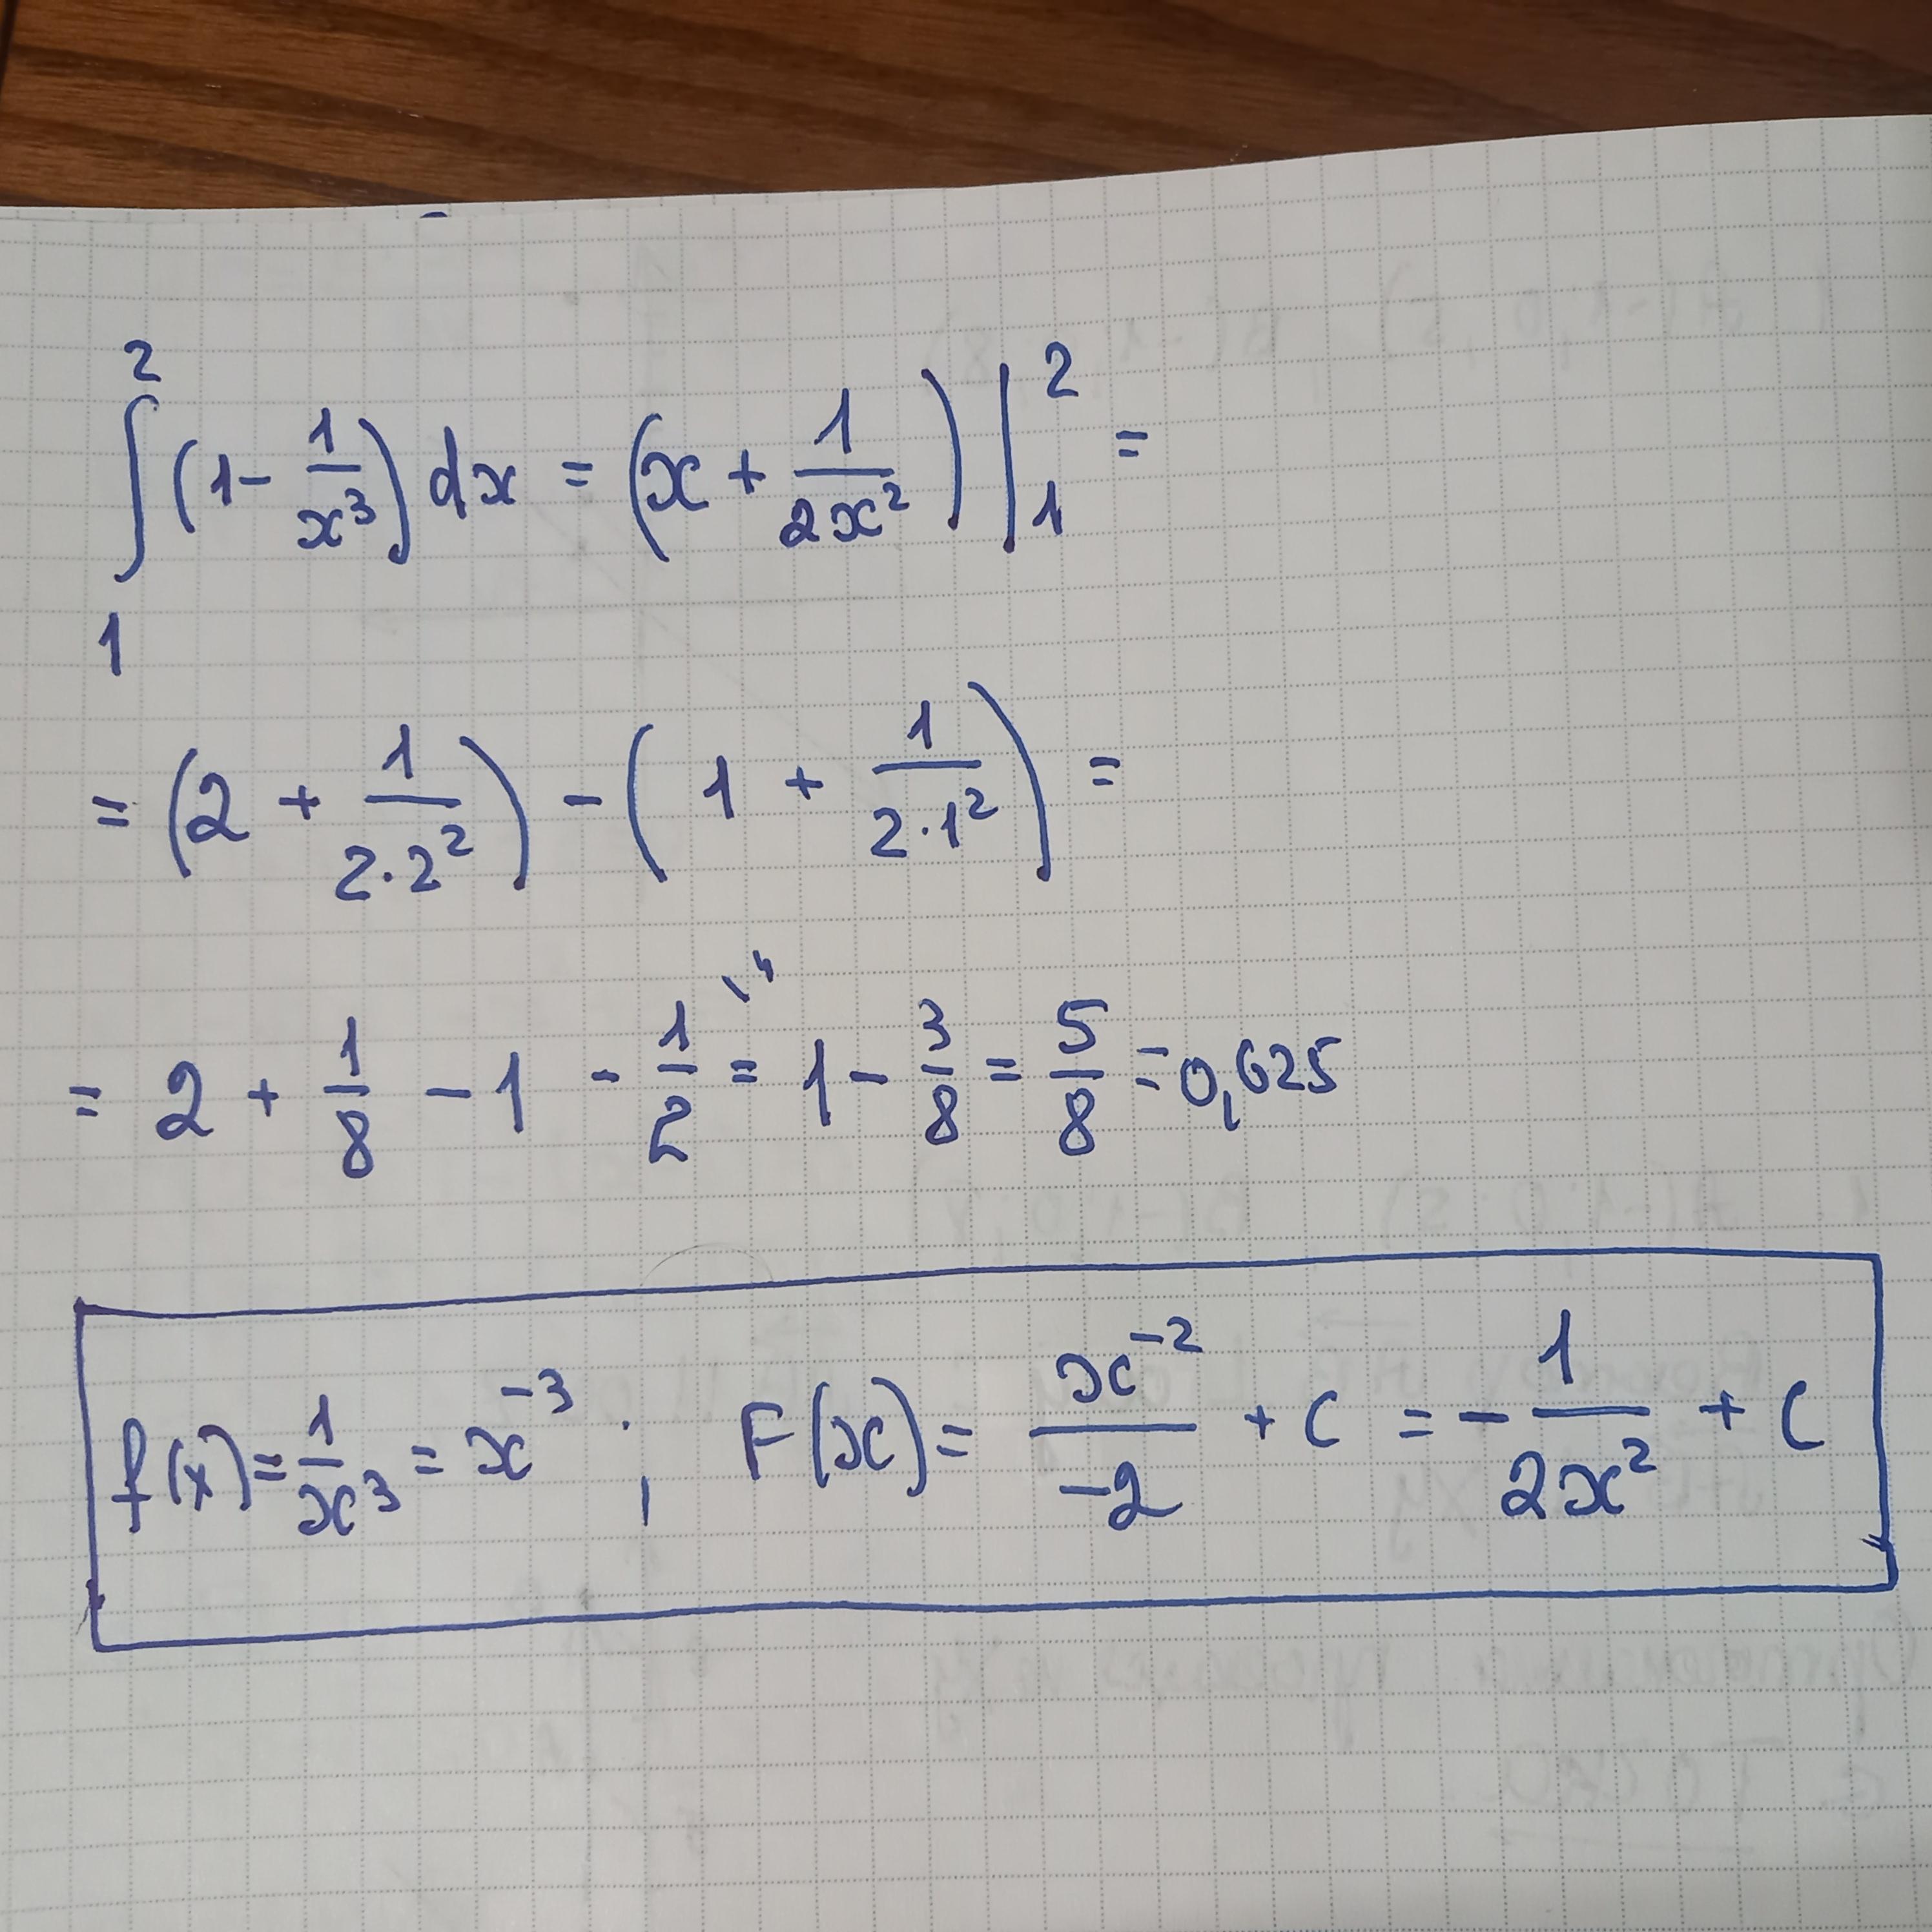 ∫₁² (1 - 1/x³) dx = (x + 1/2x²) |₁² =
= (2 + 1/2·2²) - (1 + 1/2·1²) =
= 2 + 1/8 - 1 - 1/2 = 1 - 3/8 = 5/8 = 0,625
f(x) = 1/x³ = x⁻³ ; F(x) = x⁻²/-2 + C = - 1/2x² + C